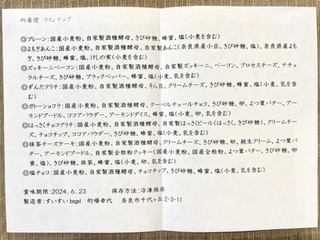 ◎プレーン:国産小麦粉、自家製酒種酵母、きび砂糖、蜂蜜、塩(小麦を含む)
◎よもぎあんこ:国産小麦粉、自家製酒種酵母、自家製あんこ(奈良県産小豆、きび砂糖、塩)、奈良県産よも
ぎ、きび砂糖、蜂蜜、塩、けしの実(小麦を含む)
◎ズッキーニベーコン:国産小麦粉、自家製酒種酵母、自家製ズッキーニ、ベーコン、プロセスチーズ、ナチュ
ラルチーズ、きび砂糖、ブラックペッパー、蜂蜜、塩(小麦、乳を含む)
◎ずんだグリチ:国産小麦粉、自家製酒種酵母、そら豆、クリームチーズ、きび砂糖、蜂蜜、塩(小麦、乳を
含む)
◎ガトーショコラ:国産小麦粉、自家製酒種酵母、クーベルチュールチョコ、きび砂糖、卵、よつ葉バター、アー
モンドプードル、ココアパウダー、アーモンドダイス、蜂蜜、塩(小麦、卵、乳を含む)
◎はっさくチョコグリチ:国産小麦粉、自家製酒種酵母、自家製はっさくピール(はっさく、きび砂糖)、クリームチー
ズ、チョコチップ、ココアパウダー、きび砂糖、蜂蜜、塩(小麦、乳を含む)
◎抹茶チーズケーキ:国産小麦粉、自家製酒種酵母、クリームチーズ、きび砂糖、卵、純生クリーム、よつ葉バ
ター、アーモンドプードル、自家製全粒粉クッキー(国産小麦粉、国産全粒粉、よつ葉バター、きび砂糖、卵
黄、塩)、きび砂糖、抹茶、蜂蜜、塩(小麦、卵、乳を含む)
◎塩チョコ:国産小麦粉、自家製酒種酵母、チョコチップ、きび砂糖、蜂蜜、塩(小麦、乳を含む)
賞味期限:2024.6.23 保存方法:冷凍保存
製造者:すいすいbagel 的場幸代 奈良市千代ヶ丘2-3-11